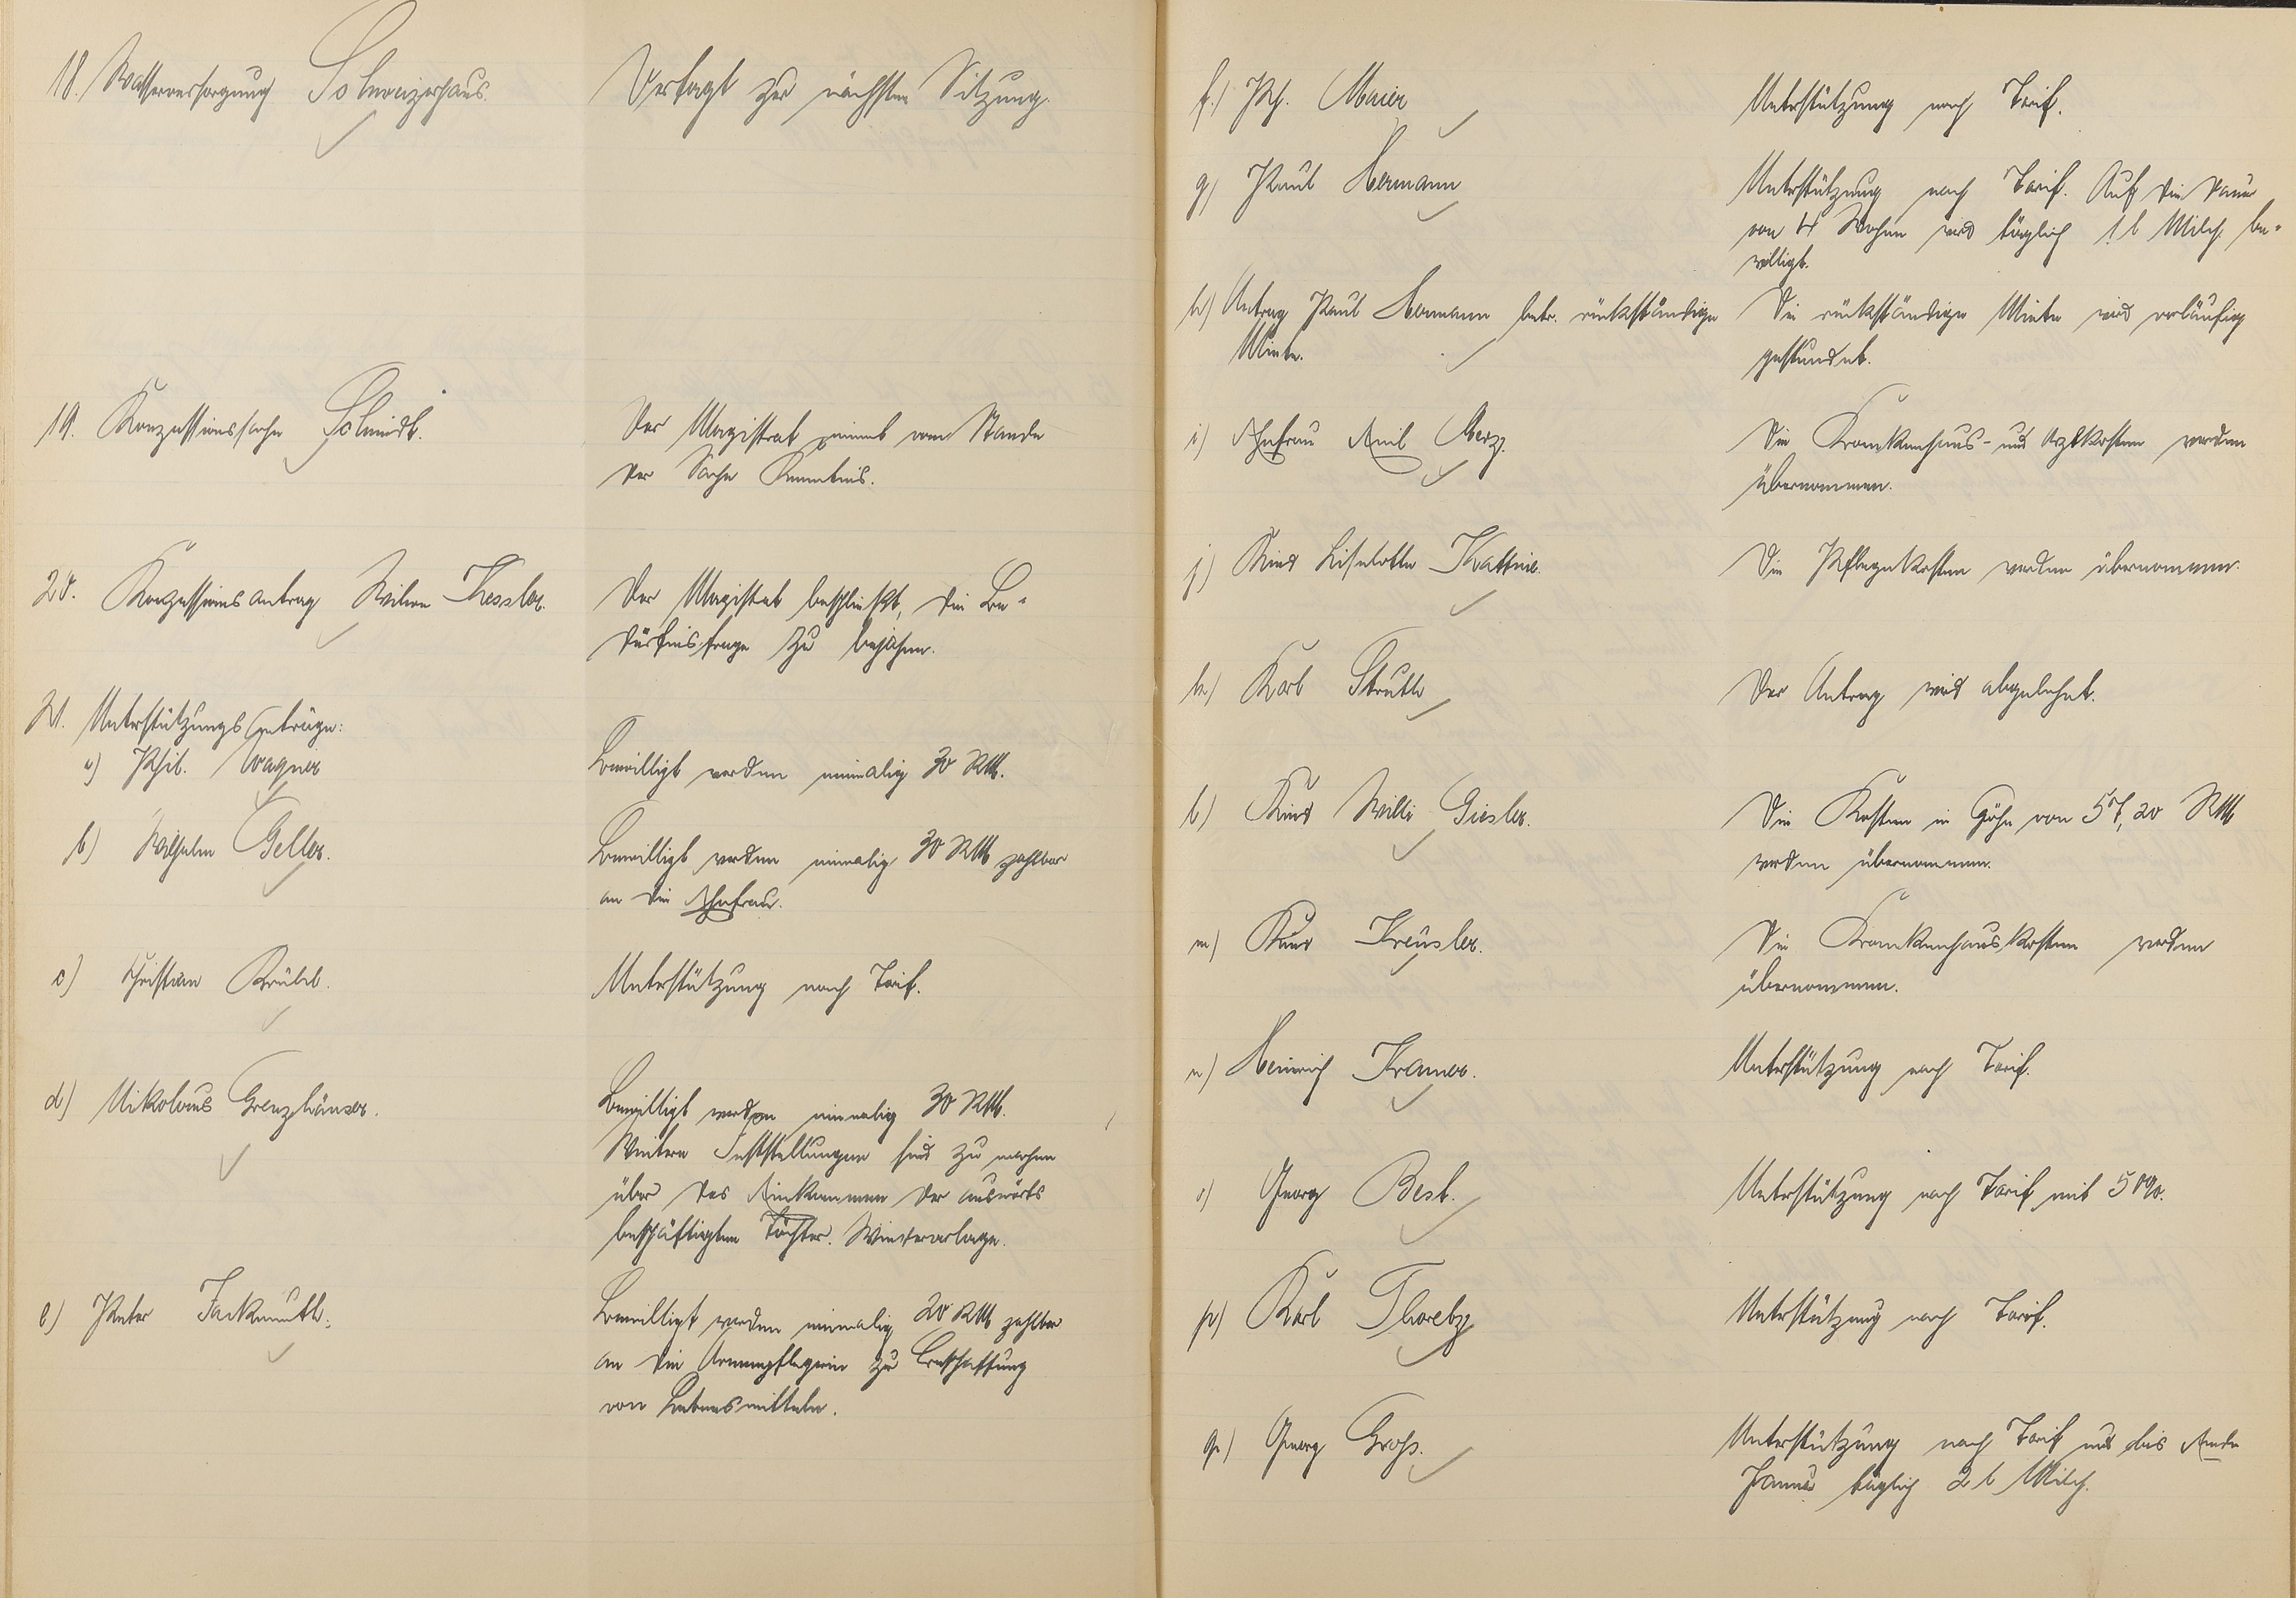 18. Wasserversorgung Schweizerhaus.
Vertagt zur nächsten Sitzung.
19. Konzessionssache Schmidt.
Der Magistrat nimmt vom Stande
der Sache Kenntnis.
20. Konzessionsantrag Witwe Kessler.
Der Magistrat beschließt, die Be-
dürfnisfrage zu bejahen.
21. Unterstützungsanträge:
a) Phil. Wagner
Bewilligt werden einmalig 30 RM.
b) Wilhelm Geller.
Bewilligt werden einmalig 30 RM zahlbar
an die Ehefrau.
c) Christian Brühl.
Unterstützung nach Tarif.
d) Nikolaus Grenzhäuser.
Bewilligt werden einmalig 30 RM.
Weitere Feststellungen sind zu machen
über das Einkommen der auswärts
beschäftigten Töchter. Wiedervorlage.
e) Peter Fackmuth.
Bewilligt werden einmalig 20 RM zahlbar
an die Armenpflegerin zu Beschaffung
von Lebensmitteln.
f.) Ph. Maier
Unterstützung nach Tarif.
g) Paul Hermann
Unterstützung nach Tarif. Auf die Dauer
von 4 Wochen wird täglich 1 l Milch be-
willigt.
h) Antrag Paul Hermann betr. rückständige
Miete.
Die rückständige Miete wird vorläufig
gestundet.
i) Ehefrau Emil Merz.
Die Krankenhaus- und Arztkosten werden
übernommen.
j) Kind Liselotte Kattine.
Die Pflegekosten werden übernommen.
k) Karl Struth
Der Antrag wird abgelehnt.
l) Kind Willi Giesler.
Die Kosten in Höhe von 57,20 RM
werden übernommen.
m) Kind Kreusler.
Die Krankenhauskosten werden
übernommen.
n) Heinrich Kramer.
Unterstützung nach Tarif.
o) Georg Best.
Unterstützung nach Tarif mit 50%.
p) Karl Thoretz
Unterstützung nach Tarif.
q) Georg Groß.
Unterstützung nach Tarif und bis Ende
Januar täglich 2 l Milch.